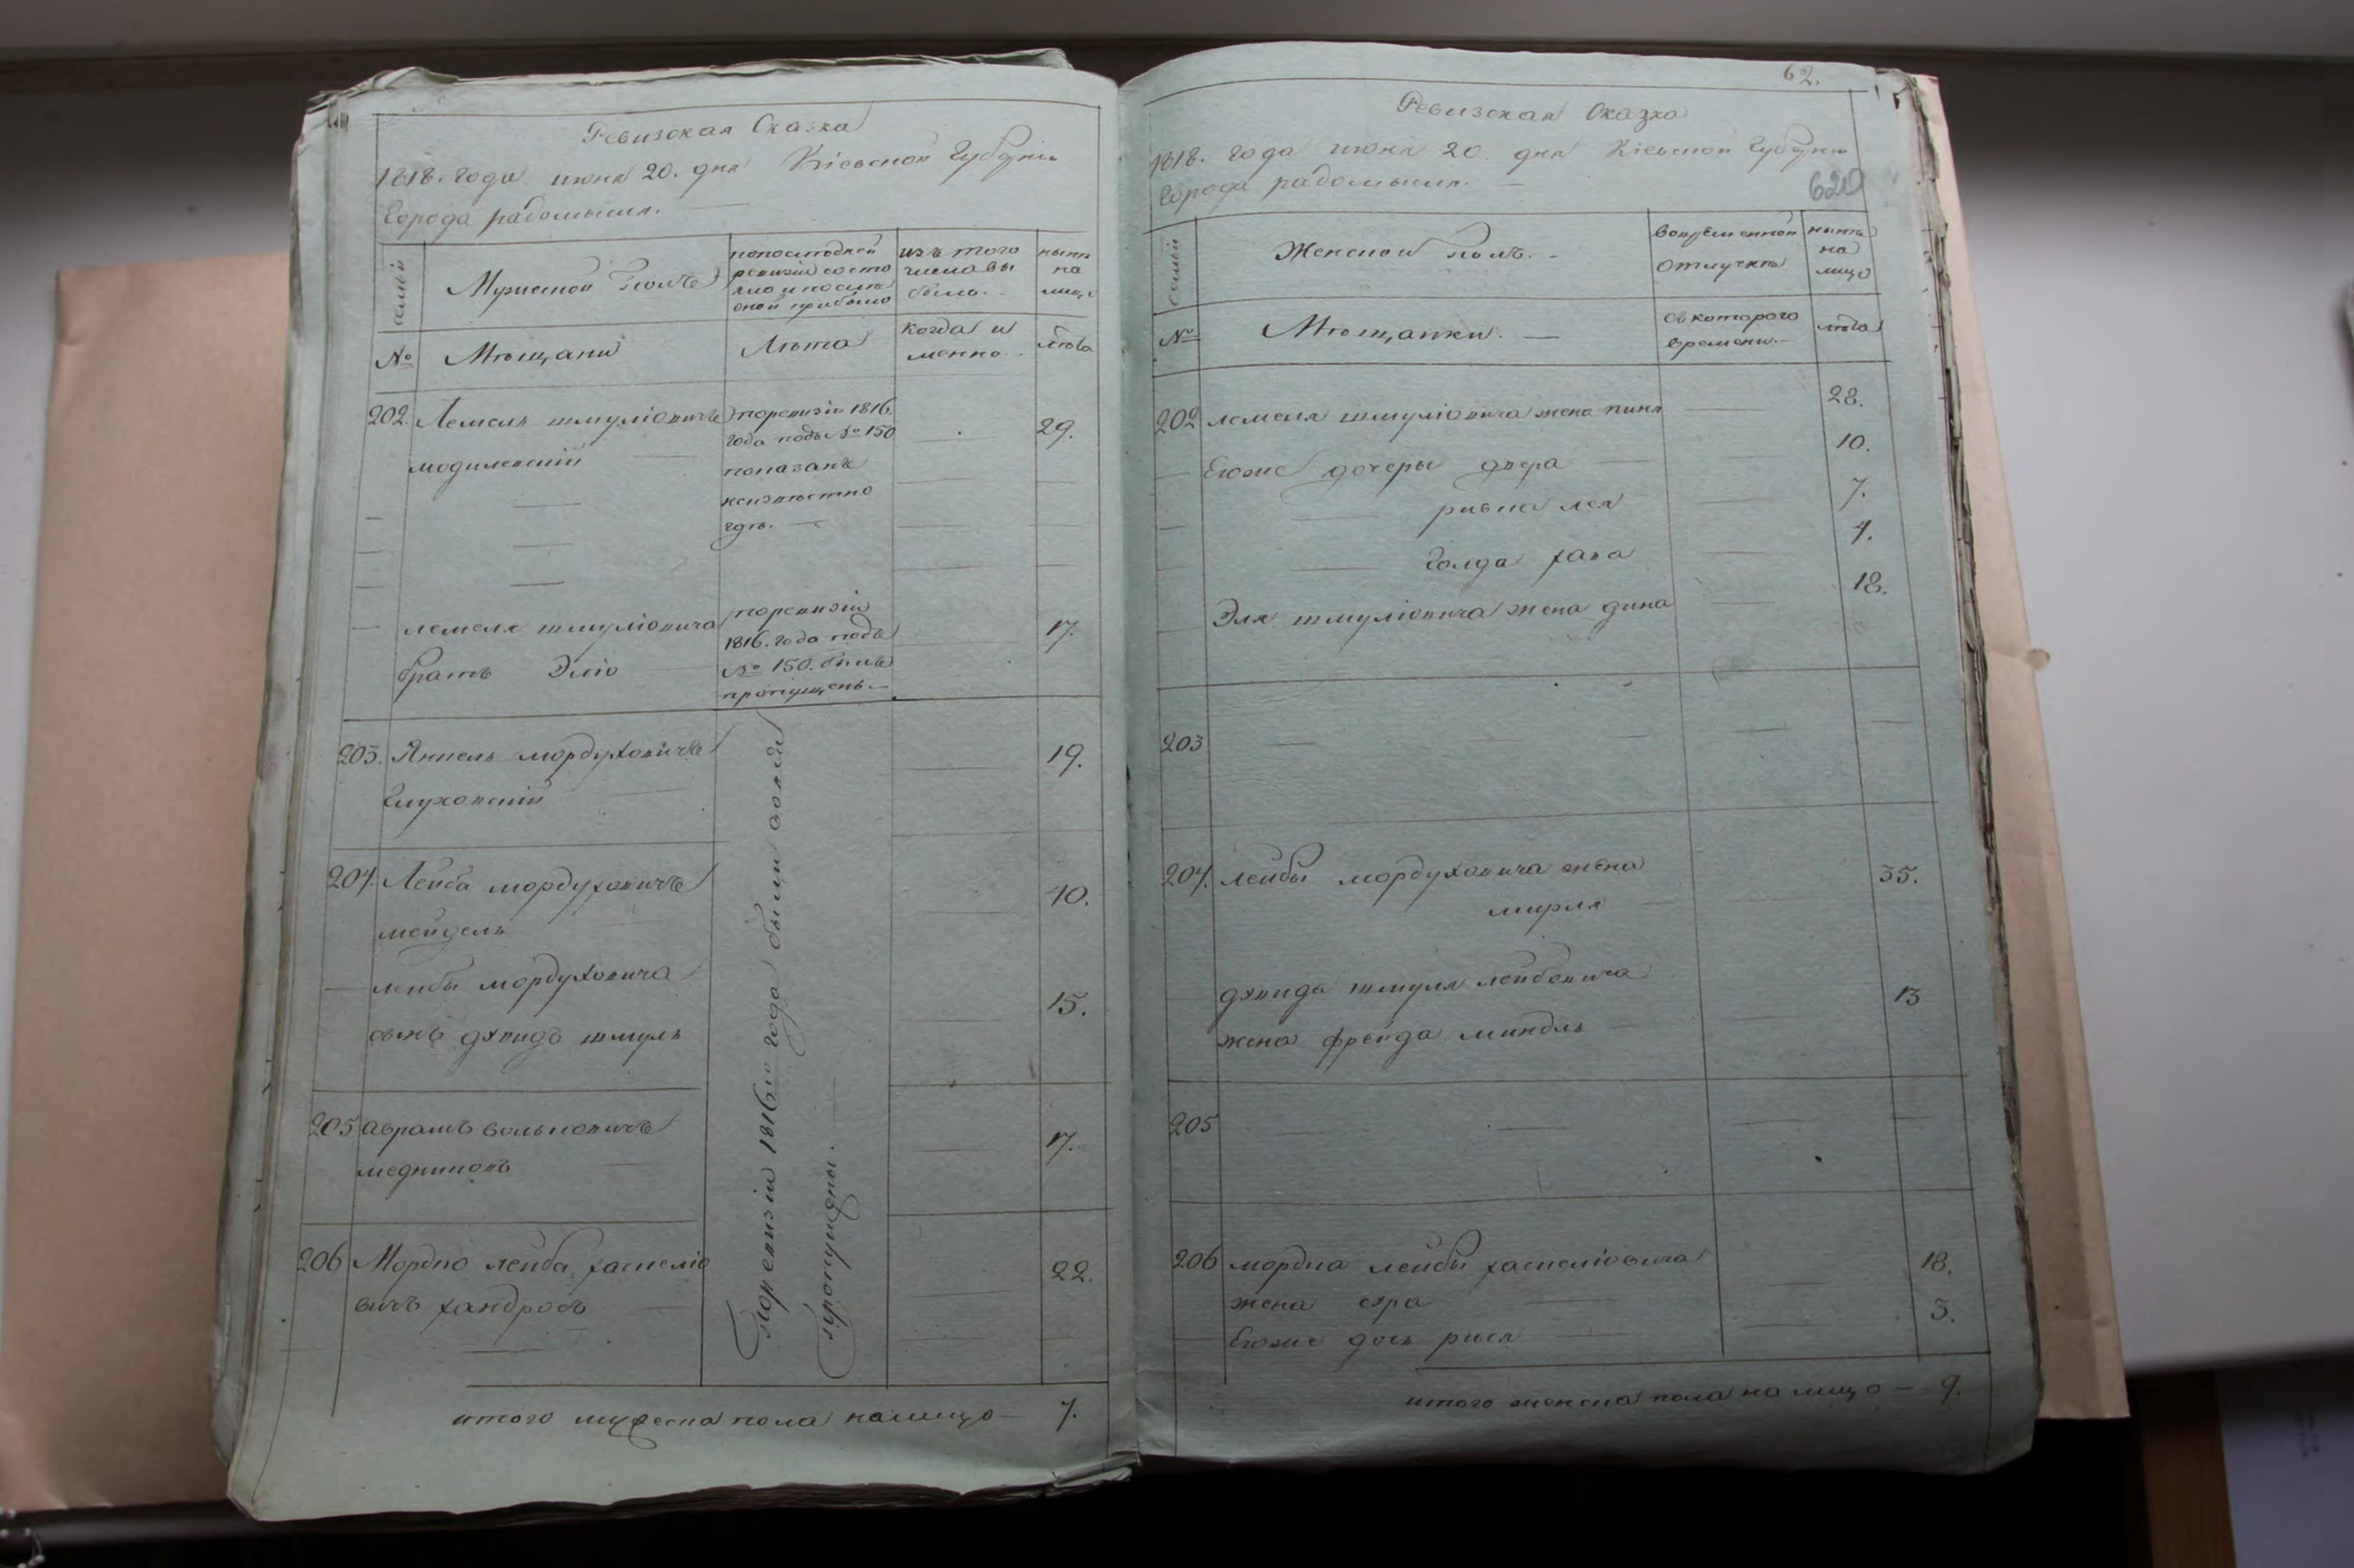 Ревизская Сказка
1818. года июня 20. дня Кіевской Губерніи
города радомысля.
семьи
Мужеской полъ
попоследней
ревизіи состо
яло и после
оной прибыло
изъ того
числа вы
было.
ныне
на
лицо
№
Мѣщани
Лѣта
когда и
менно.
лѣта
202. Лемель шмуліовичъ
модилевскій
поревизіи 1816.
года подъ № 150
показанъ
неизвѣстно
гдѣ.
29.
лемеля шмуліовича
братъ Эліо
поревизіи
1816. года подъ
№ 150. билъ
пропущенъ.
17.
203. Янкель мордуховичъ
глуховскій
19.
204. Лейба мордуховичъ
мейдель
40.
лейбы мордуховича
сынъ дувидъ шмуль
15.
205 аврамъ волковичъ
медниковъ
17.
206 Мордко лейба хаскеліо
вичъ хандросъ
22.
Поревизіи 1816го года были
пропущены.
итого мужеска пола налицо 7.
62.
Ревизская Сказка
1818. года июня 20. дня Кіевской Губерніи
города радомысля.
620
семьи
Женской полъ.
вовременной
отлучкѣ
ныне
на
лицо
№
Мѣщанки.
съ которого
времени.
лѣта
202 лемеля шмуліовича жена 28.
Егоже дочеры двера 10.
ривка лея 7.
голда хава 4.
Эля шмуліовича жена дина 18.
203
204. лейбы мордуховича жена 35.
мирля
дувида шмуля лейбовича 13
жена фрейда миндль
205
206 мордка лейбы хаскеліовича 18.
жена сура
Егоже дочь рися 3.
итого женска пола на лицо — 9.